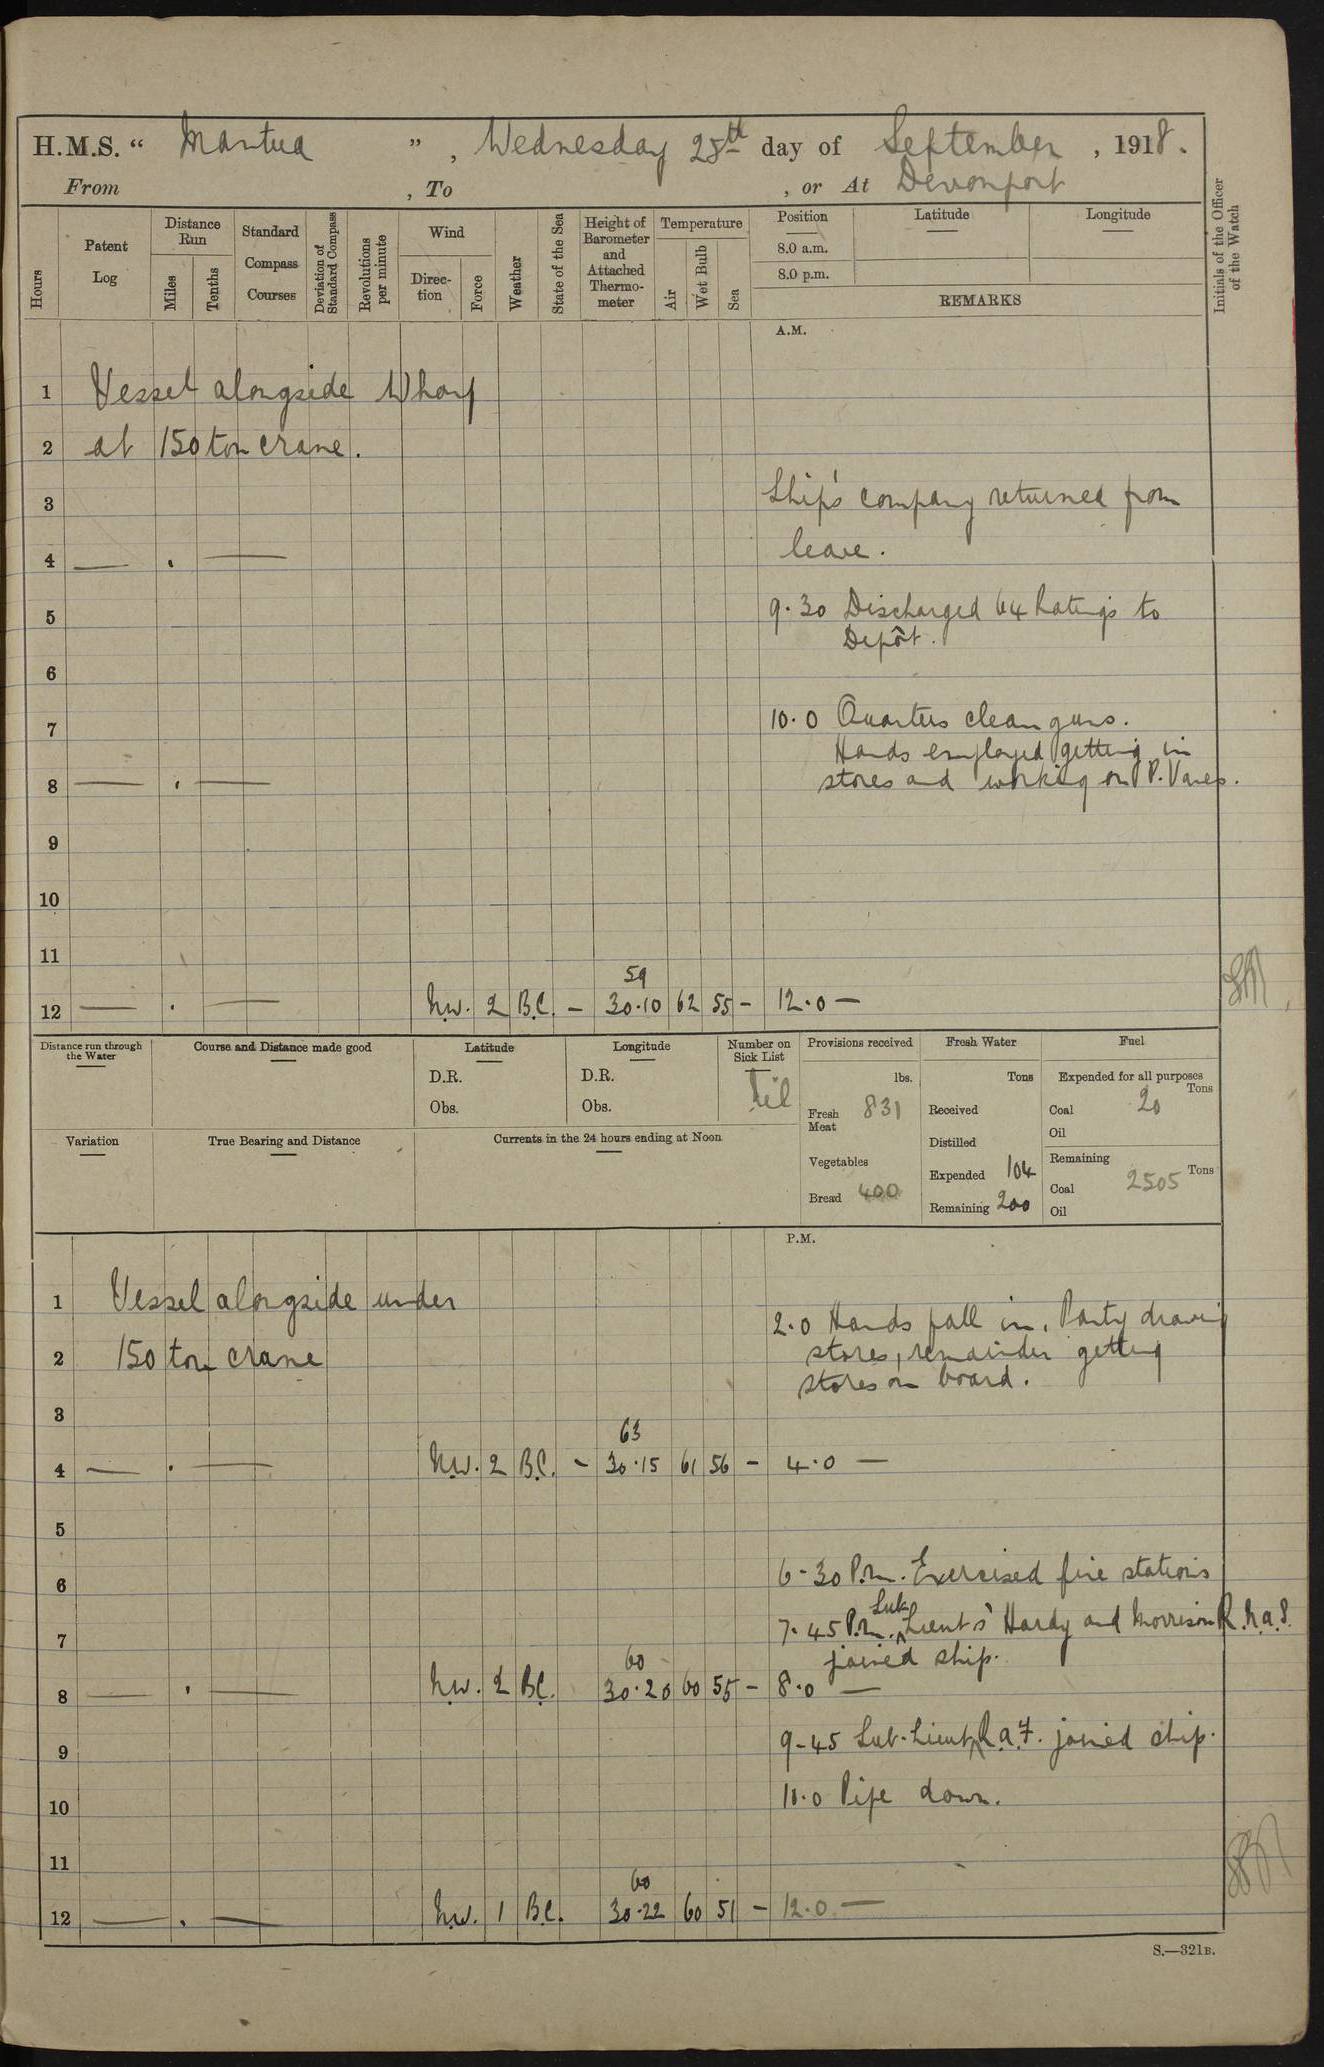 H.M.S. “ Mantua ” , Wednesday 25th day of September , 1918.
From , To , or At Devonport
Hours
Patent Log
Distance Run
Miles
Tenths
Standard Compass Courses
Deviation of Standard Compass
Revolutions per minute
Wind
Direction
Force
Weather
State of the Sea
Height of Barometer and Attached Thermometer
Temperature
Air
Wet Bulb
Sea
Position
8.0 a.m.
8.0 p.m.
Latitude
Longitude
REMARKS
Initials of the Officer of the Watch
A.M.
1 Vessel alongside Wharf
2 at 150 ton crane.
3 Ship's company returned from
4 — . — leave.
5 9.30 Discharged 64 Ratings to
Depôt.
6
7 10.0 Quarters clean guns.
Hands employed getting in
8 — . — stores and working on P. Vanes.
9
10
11
59
12 — . — N.W. 2 B.C. – 30.10 62 55 – 12.0 —
Distance run through the Water
Course and Distance made good
Latitude
D.R.
Obs.
Longitude
D.R.
Obs.
Number on Sick List
Nil
Provisions received
lbs.
Fresh Meat 831
Vegetables
Bread 400
Fresh Water
Tons
Received
Distilled
Expended 104
Remaining 200
Fuel
Expended for all purposes
Tons
Coal 20
Oil
Remaining
Tons
Coal 2505
Oil
Variation
True Bearing and Distance
Currents in the 24 hours ending at Noon
P.M.
1 Vessel alongside under
2.0 Hands fall in, Party drawing
2 150 ton crane stores, remainder getting
stores on board.
3
63
4 — . — N.W. 2 B.C. – 30.15 61 56 – 4.0 —
5
6 6-30 P.m. Exercised fire stations
Sub
7 7.45 P.m. Lieuts Hardy and Morrison R.N.A.S.
joined ship.
60
8 — . — N.W. 2 B.C. 30.20 60 55 – 8.0 —
9 9-45 Sub-Lieut R.A.F. joined ship.
10 10.0 Pipe down.
11
60
12 — . — N.W. 1 B.C. 30.22 60 51 – 12.0 —
S.—321B.